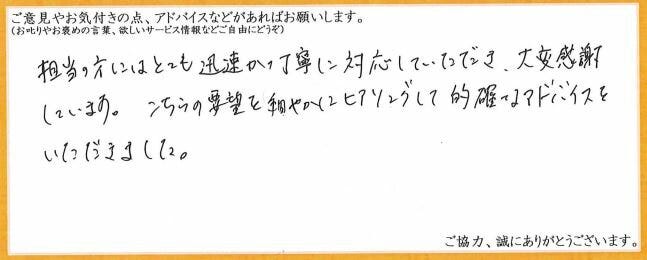 ご意見やお気付きの点、アドバイスなどがあればお願いします。
(お叱りやお褒めの言葉、欲しいサービス情報などご自由にどうぞ)
担当の方にはとても迅速かつ丁寧に対応していただき、大変感謝
しています。こちらの要望を細やかにヒアリングして的確なアドバイスを
いただきました。
ご協力、誠にありがとうございます。